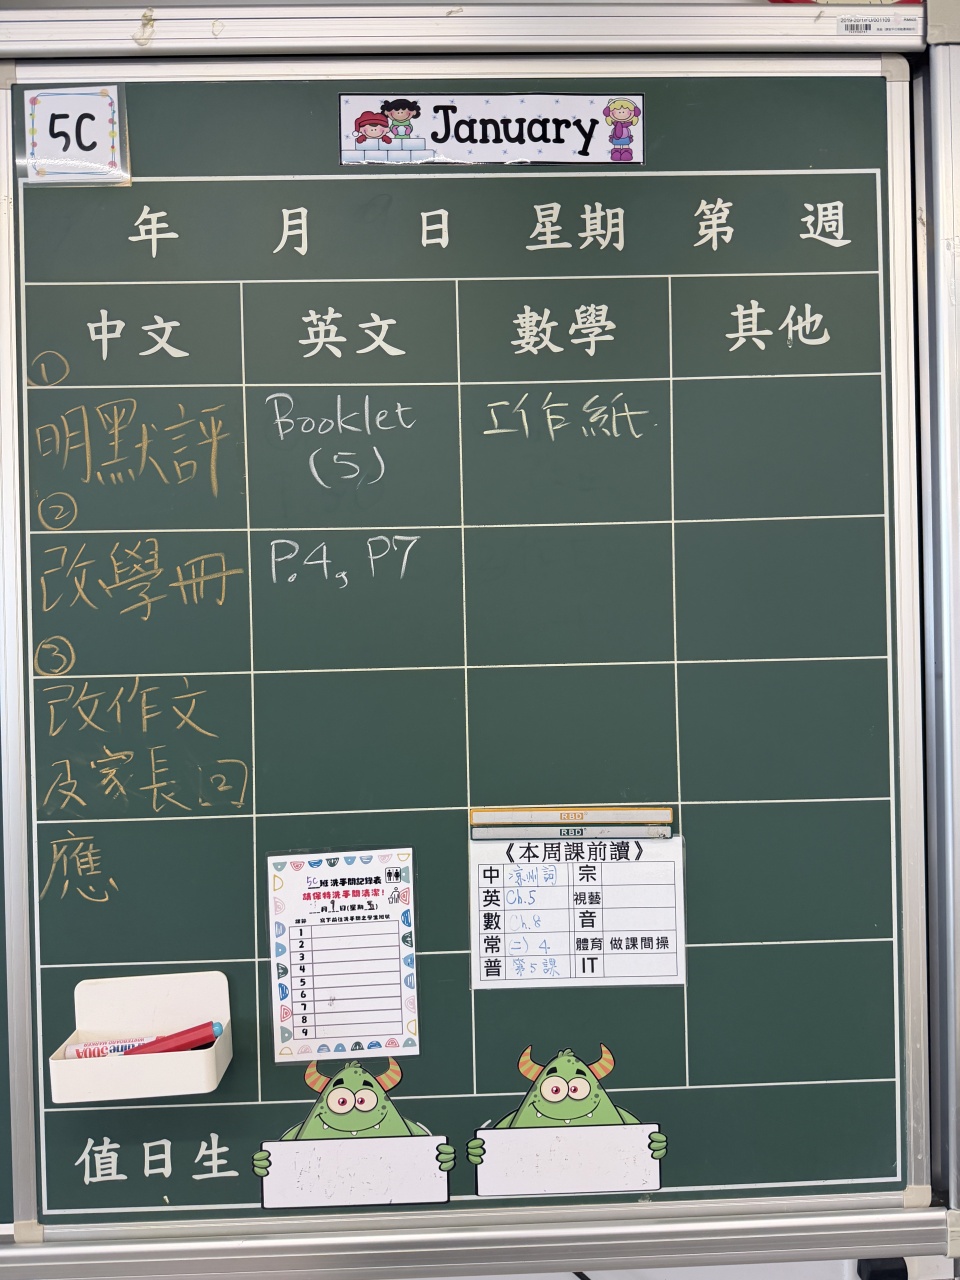 5C
January
年 月 日 星期 第 週
中文 英文 數學 其他
①
明默評
Booklet
(5)
工作紙
②
改學冊
P.4, P7
③
改作文
及家長回
應
RBD
RBD
《本周課前讀》
中 涼州詞 宗
英 Ch.5 視藝
數 Ch.8 音
常 (二) 4 體育 做課間操
普 第5課 IT
5C班洗手間記錄表
請保持洗手間清潔!
月 日(星期五)
1
2
3
4
5
6
7
8
9
值日生